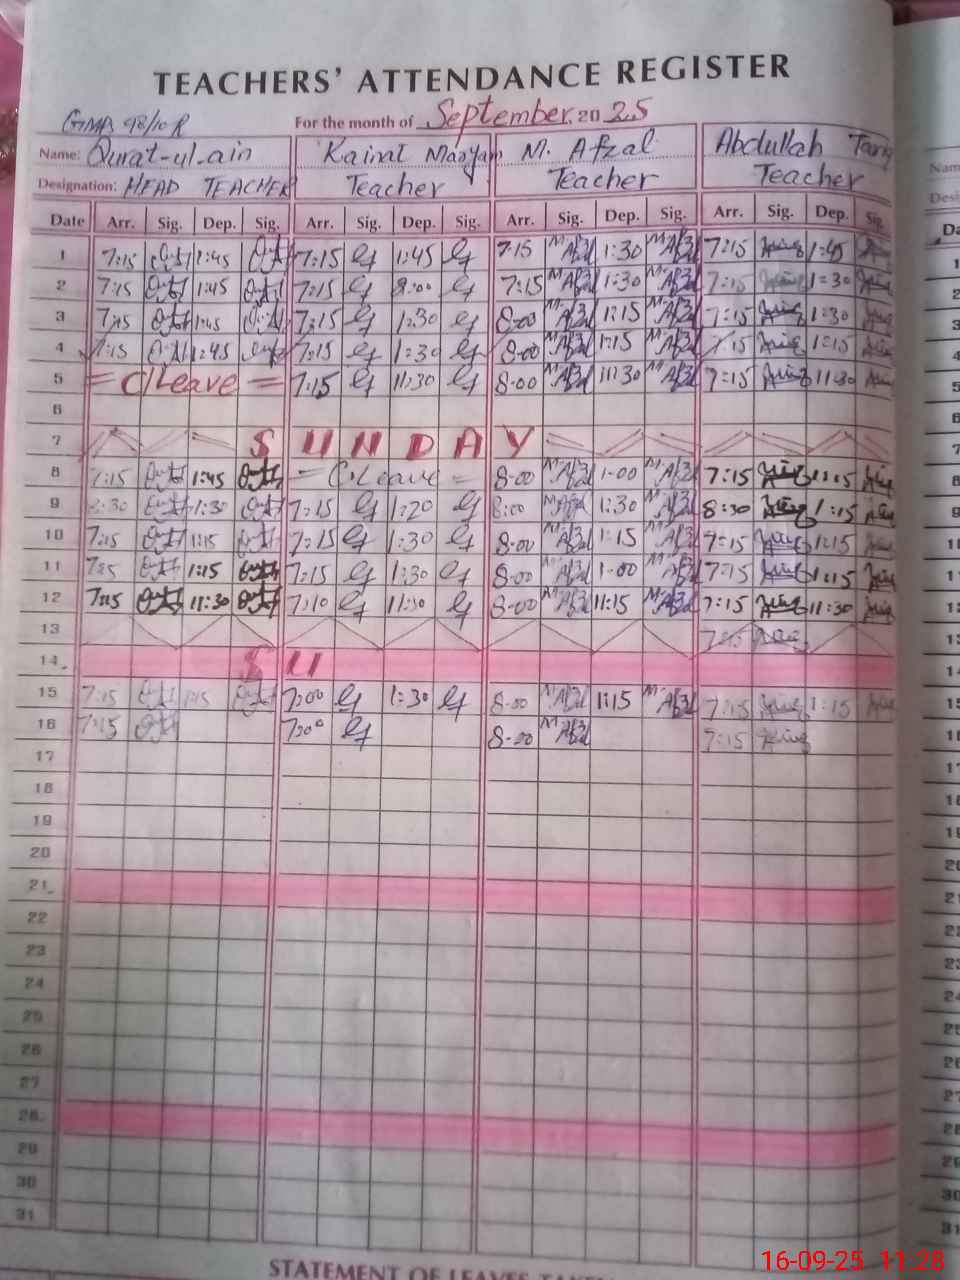 TEACHERS' ATTENDANCE REGISTER
GMPS 98/10 R For the month of September 20 25
Name: Qurat-ul-ain Kainat Maryam M. Afzal Abdullah Tariq
Designation: HEAD TEACHER Teacher Teacher Teacher
Date Arr. Sig. Dep. Sig. Arr. Sig. Dep. Sig. Arr. Sig. Dep. Sig. Arr. Sig. Dep. Sig.
1 7:15 1:45 7:15 1:45 7:15 M.Afzal 1:30 M.Afzal 7:15 1:45
2 7:15 1:45 7:15 2:00 7:15 M.Afzal 1:30 M.Afzal 7:15 1:30
3 7:15 1:45 7:15 1:30 8:00 M.Afzal 1:15 M.Afzal 7:15 1:30
4 7:15 1:45 7:15 1:30 8-00 M.Afzal 1:15 M.Afzal 7:15 1:15
5 = C/Leave = 7:15 11:30 8-00 M.Afzal 11:30 M.Afzal 7:15 11:30
6
7 SUNDAY
8 7:15 1:45 = C/Leave = 8-00 M.Afzal 1-00 M.Afzal 7:15 1:15
9 8:30 1:30 7:15 1:20 8:00 M.Afzal 1:30 M.Afzal 8:30 1:15
10 7:15 1:15 7:15 1:30 8-00 M.Afzal 1:15 M.Afzal 7:15 1:15
11 7:15 1:15 7:15 1:30 8-00 M.Afzal 1-00 M.Afzal 7:15 1:15
12 7:15 11:30 7:10 11:30 8-00 M.Afzal 11:15 M.Afzal 7:15 11:30
13 7:15
14 SU
15 7:15 1:15 7:00 1:30 8-00 M.Afzal 1:15 M.Afzal 7:15 1:15
16 7:15 7:00 8-00 M.Afzal 7:15
17
18
19
20
21
22
23
24
25
26
27
28
29
30
31
STATEMENT OF LEAVES TAKEN
16-09-25 11:28